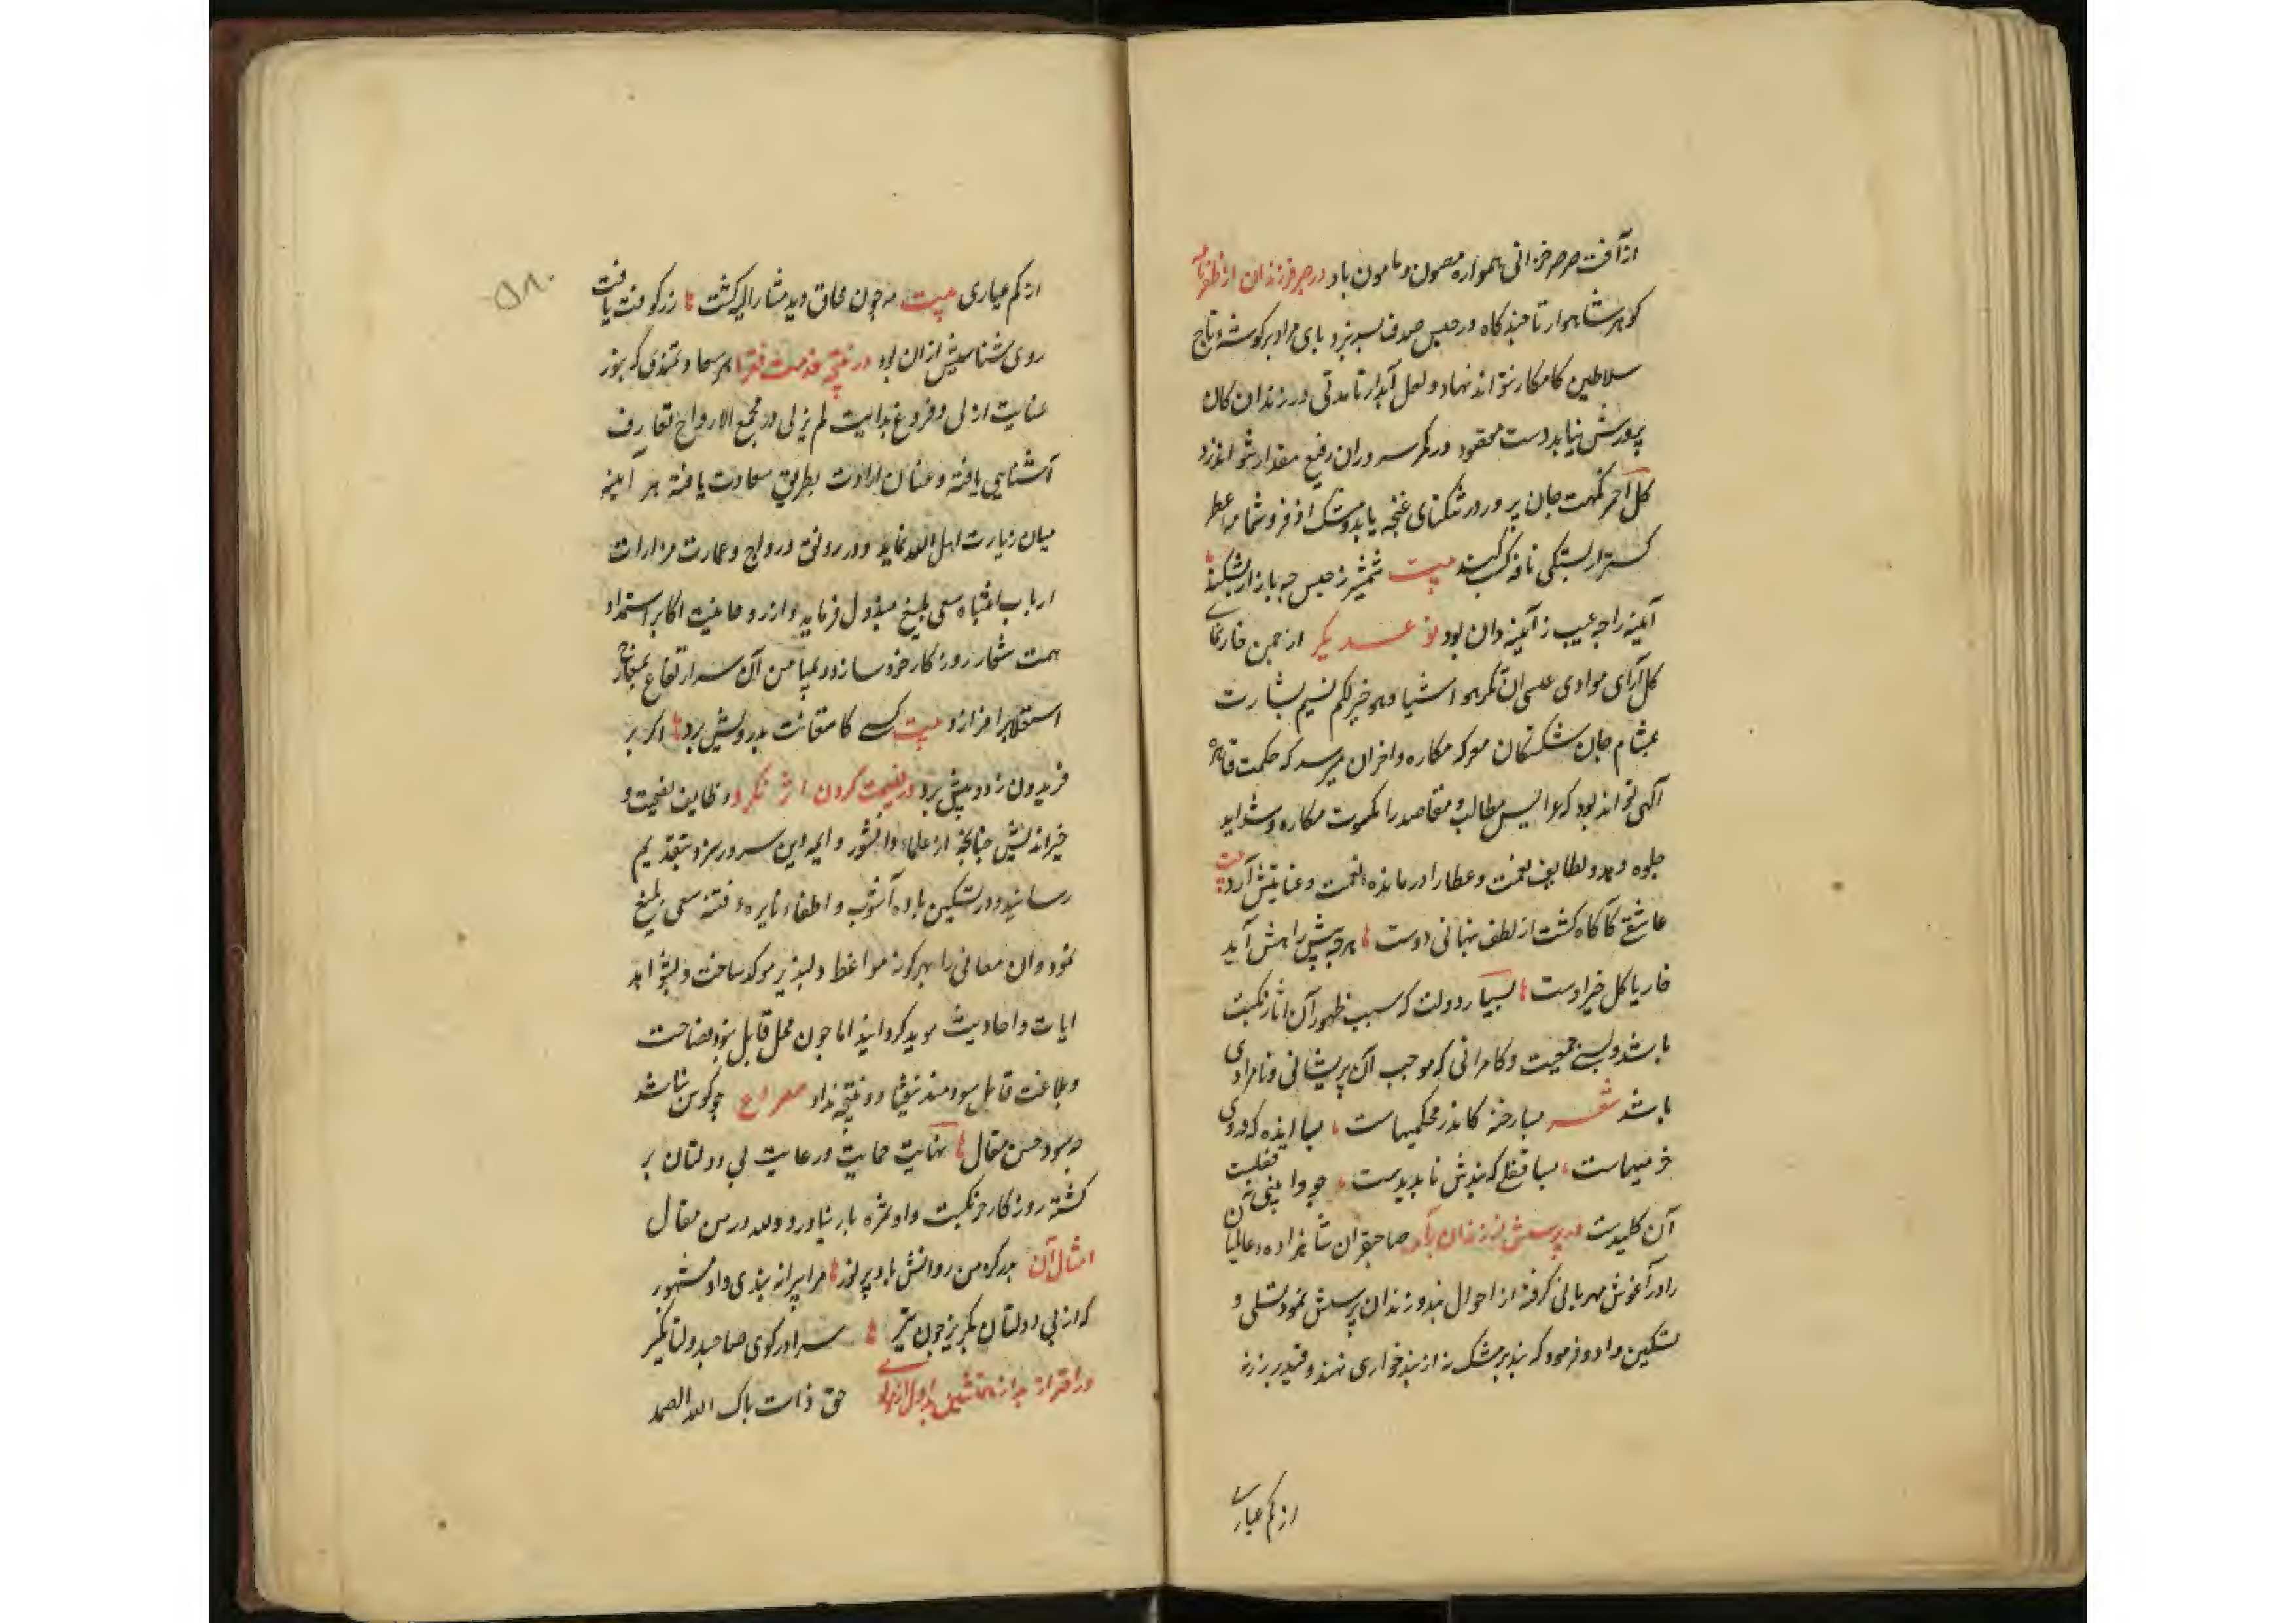 از آفت صرصر خزانی همواره مصون و مامون باد در حبس فرزندان از ظفرنامه
کوهر شاهوار تا چندکاه در حبس صدف بسر نبرد پای مراد بر کوشهٔ تاج
سلاطین کامکار نتواند نهاد و لعل آبدار تا مدتی در زندان کان
پرورش نیابد دست مقصود در کمر سروران رفیع مقدار نتواند زد
کل احمر نکهت جان پرور در تنکنای غنچه یابد و مشک اذفر و شمامه عطر
کستر از بستکی نافه کسب کند بیت شمشیر ز حبس چه بازار بشکند
آینه را چه عیب ز آینه دان بود نوعدیکر از چمن خارنمای
کل آرای موادی عسی ان تکرهوا شیا و هو خیر لکم نسیم بشارت
بمشام جان شکستکان معرکه مکاره و احزان میرسد که حکمت قاهره
الهی تواند بود که عرایس مطالب و مقاصد را بکسوت مکاره و شداید
جلوه دهد و لطایف نعمت و عطا را در مایده نقمت و عنا پیش آرد بیت
عاشقی کاکاه کشت از لطف پنهانی دوست هرچه پیش راهش آید
خار یا کل خیر اوست بسیار دولت که سبب ظهور آن آثار نکبت
باشد و بسی جمعیت و کامرانی که موجب آن پریشانی و نامرادی
باشد شعر بسا رخنه کاندر محکمیهاست بسا انده که در وی
خرمیهاست بسا قفلی که بندش ناپدیدست چو وا بینی نه قفلست
آن کلیدست در پرسش از زندان برآمده صاحبقران شاهزاده عالمیان
را در آغوش مهربانی کرفته از احوال بند و زندان پرسش نمود تسلی و
تسکین داد و فرمود که بند بر مشک نه از بند خواری نهند و قید بر زر نه
از کم عیاری
۵۸۰
از کم عیاری بیت مه چون محاق دید مشار الیه کشت زر کوفت یافت
روی شناسیش از ان بود در نتیجه خدمت فقرا هر سعادتمندی که بنور
عنایت ازلی و فروغ هدایت لم یزلی در مجمع الارواح تعارف
آشنایی یافته و عنان ارادت بطریق سعادت یافته هر آینه
میان زیارت اهل الله نماید و در رونق و رواج و عمارت مزارات
ارباب انتباه سعی بلیغ مبذول فرماید و از روحانیت اکابر استمداد
همت شعار روزکار خود سازد و بمیامن آن سر ارتفاع بمعارج
استعلا بر افرازد بیت کسی کاستعانت بدرویش برد اکر بر
فریدون زد و پیش برد در نصیحت کردن اثر نکرد وظایف نصیحت و
خیراندیشی چنانچه از علماء دانشور و ایمه دین سرور سزد بتقدیم
رسانید و در تسکین ماده آشوب و اطفاء نایره فتنه سعی بلیغ
نمود و ان معانی را بهرکونه مواعظ دلپذیر موکد ساخت و بشواهد
ایات و احادیث موید کردانید اما چون محل قابل نبود فصاحت
و بلاغت قایل سودمند نیفتاد و نتیجه نداد مصراع چو کوش نباشد
چه سود حسن مقال نهایت حمایت و رعایت بی دولتان بر
کشته روزکار جز نکبت و ادبار ثمره بار نیاورد و لله در من مقال
امثال آن پدر که من روانش باد پر نور مرا پیرانه پندی داد مشهور
که از بی دولتان بکریز چون تیر سرا در کوی صاحبدولتان کیر
حق ذات پاک الله الصمد